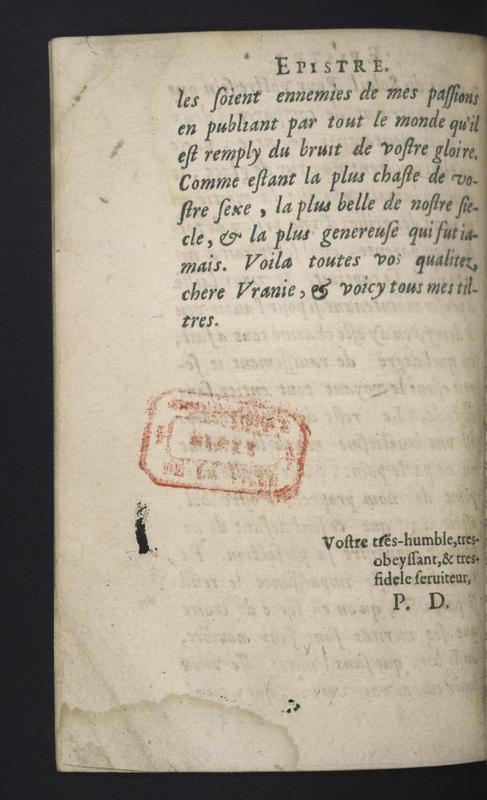 EPISTRE.
les ſoient ennemies de mes paſſions
en publiant par tout le monde qu'il
eſt remply du bruit de voſtre gloire.
Comme eſtant la plus chaſte de vo-
ſtre ſexe, la plus belle de noſtre ſie-
cle, & la plus genereuſe qui fut ia-
mais. Voila toutes vos qualitez,
chere Vranie, & voicy tous mes til-
tres.
DE LA
Voſtre tres-humble, tres-
obeyſſant, & tres-
fidele ſeruiteur,
P. D.